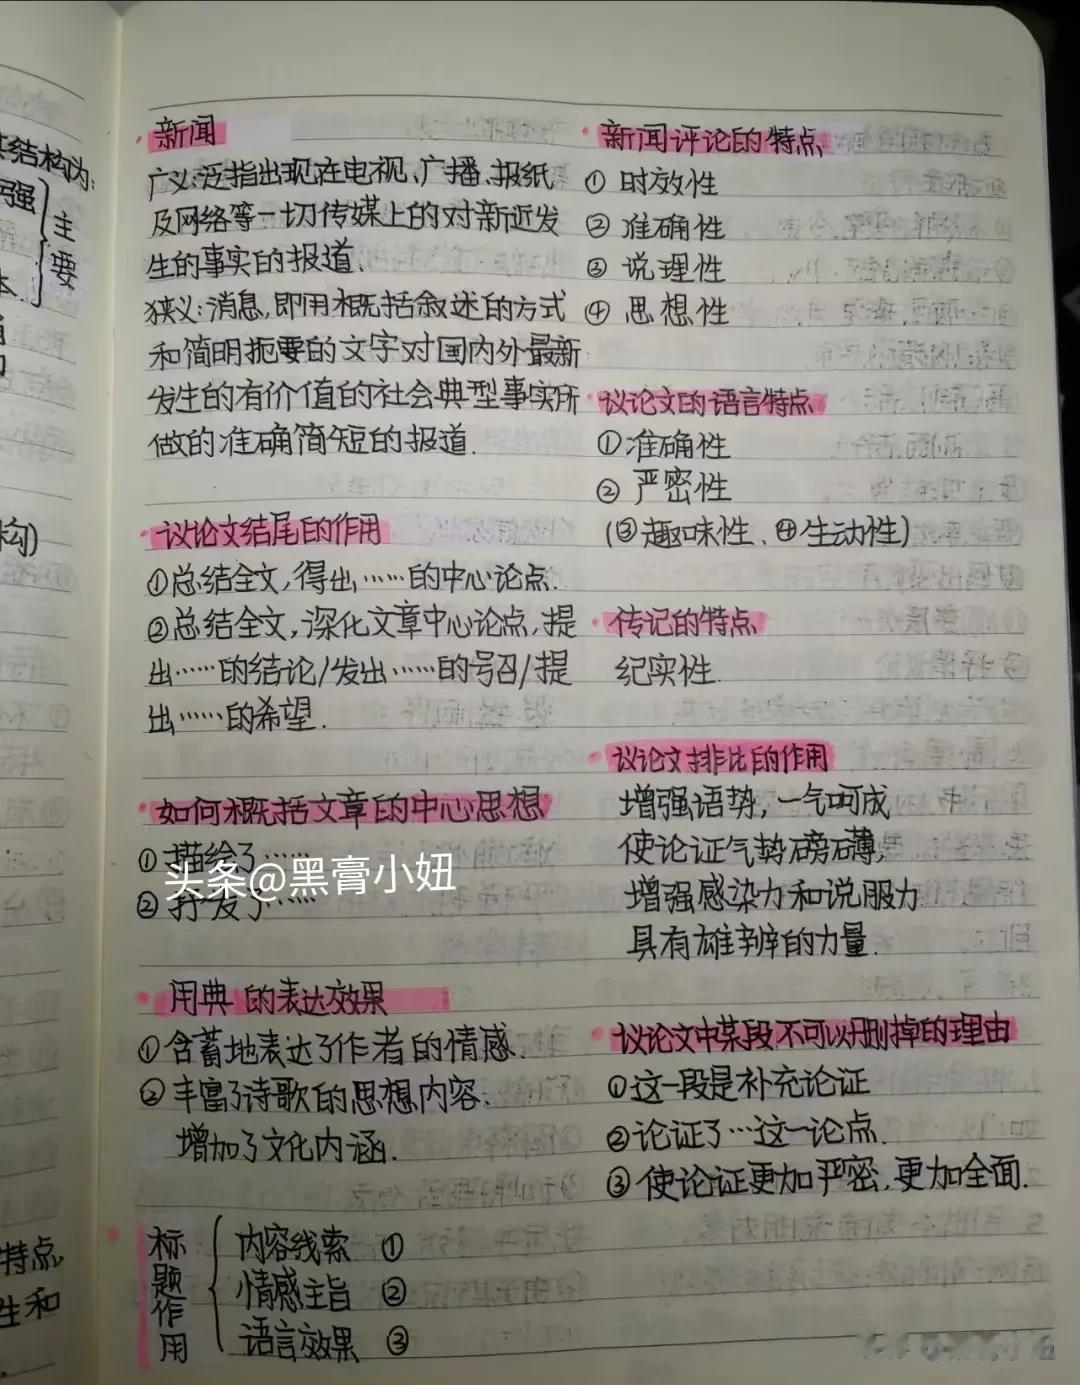 新闻
广义:泛指出现在电视、广播、报纸
及网络等一切传媒上的对新近发
生的事实的报道.
狭义:消息,即用概括叙述的方式
和简明扼要的文字对国内外最新
发生的有价值的社会典型事实所
做的准确简短的报道.
议论文结尾的作用
①总结全文,得出……的中心论点.
②总结全文,深化文章中心论点,提
出……的结论/发出……的号召/提
出……的希望.
如何概括文章的中心思想
①描绘了……
②抒发了……
头条@黑膏小妞
用典的表达效果
①含蓄地表达了作者的情感.
②丰富了诗歌的思想内容.
增加了文化内涵.
标题作用
内容线索 ①
情感主旨 ②
语言效果 ③
新闻评论的特点
①时效性
②准确性
③说理性
④思想性
议论文的语言特点
①准确性
②严密性
(③趣味性、④生动性)
传记的特点
纪实性.
议论文排比的作用
增强语势,一气呵成
使论证气势磅礴,
增强感染力和说服力
具有雄辩的力量.
议论文中某段不可以删掉的理由
①这一段是补充论证
②论证了…这一论点.
③使论证更加严密,更加全面.
结构为:
强
主要
本
构)
特点
性和